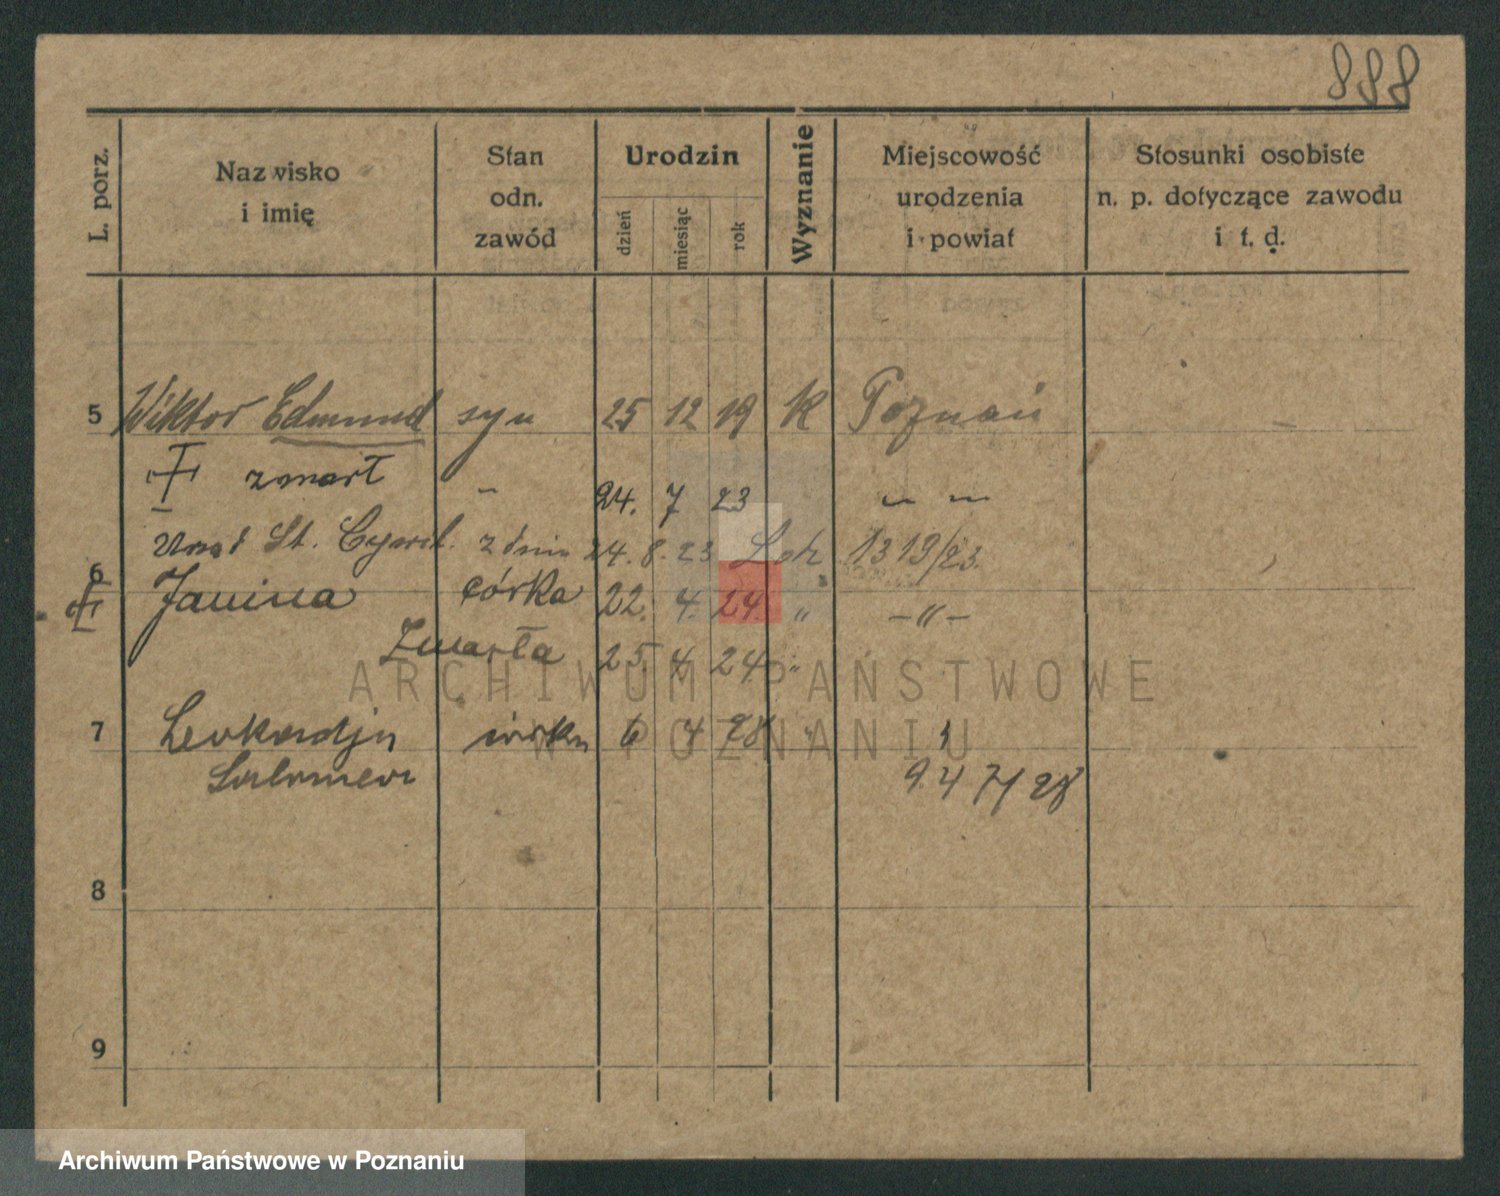 888
L. porz. Nazwisko i imię Stan odn. zawód Urodzin dzień miesiąc rok Wyznanie Miejscowość urodzenia i powiat Stosunki osobiste n. p. dotyczące zawodu i t. d.
5 Wiktor Edmund syn 25 12 19 K Poznań
zmarł - 24. 7 23 - -
Urząd St. Cywil. z dnia 24. 8. 23 1319/23.
6 Janina córka 22. 4. 24. " -"-
Zmarła 25 4 24. "
7 Leokadja córka 6 4 28 "
Salomea 9.4 28
8
9
ARCHIWUM PAŃSTWOWE
W POZNANIU
Archiwum Państwowe w Poznaniu